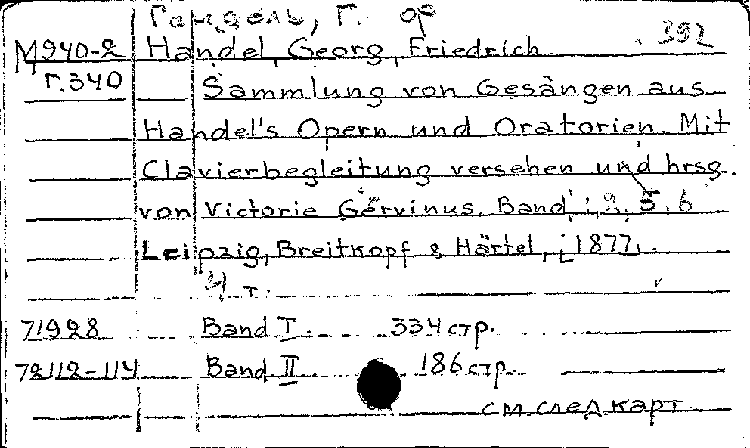 Гендель, Г. Ф
392
М940-2 Handel, Georg, Friedrich
Г.340 Sammlung von Gesängen aus
Handel's Opern und Oratorien. Mit
Clavierbegleitung versehen und hrsg.
von Victorie Gervinus. Band, 5, 6
Leipzig, Breitkopf & Härtel, [1877].
4 т.
71928 Band I. 334 стр.
72112-114 Band II 186 стр.
см. след карт